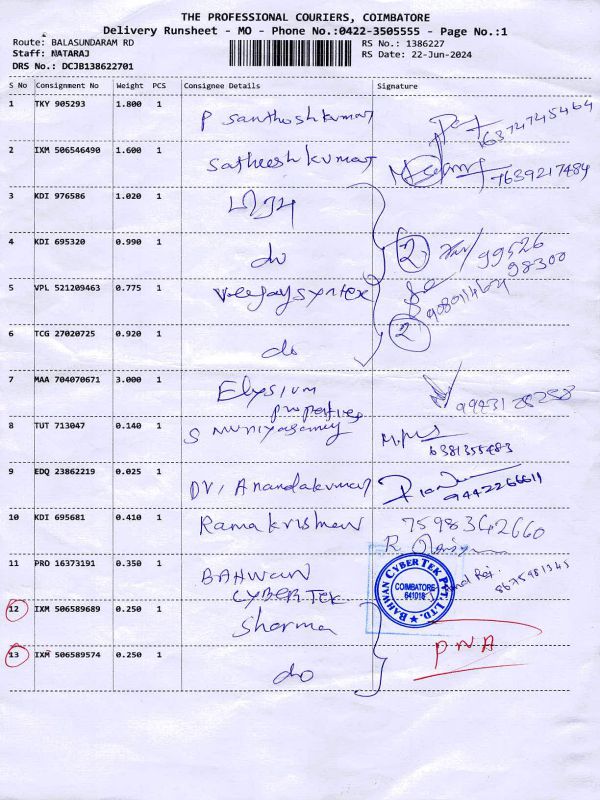 THE PROFESSIONAL COURIERS, COIMBATORE
Delivery Runsheet - MO - Phone No.:0422-3505555 - Page No.:1
Route: BALASUNDARAM RD
RS No.: 1386227
Staff: NATARAJ
RS Date: 22-Jun-2024
DRS No.: DCJB138622701
S No Consignment No Weight PCS Consignee Details Signature
1 TKY 905293 1.800 1 P Santhoshkumar 6374745464
2 IXM 506546490 1.600 1 Satheeshkumar 7639217484
3 KDI 976586 1.020 1
4 KDI 695320 0.990 1 do 2 99526
98300
5 VPL 521209463 0.775 1
6 TCG 27020725 0.920 1 do 2
7 MAA 704070671 3.000 1 Elysium
properties
8 TUT 713047 0.140 1 S Muniyasamy
6381355483
9 EDQ 23862219 0.025 1 DV, Anandakumar
9442266611
10 KDI 695681 0.410 1 Ramakrishnan 7598342660
11 PRO 16373191 0.350 1 BAHWAN
CYBERTEK
BAHWAN CYBER TEK PVT. LTD.
COIMBATORE
641018
8675981345
12 IXM 506589689 0.250 1 Sharma
PNA
13 IXM 506589574 0.250 1 do